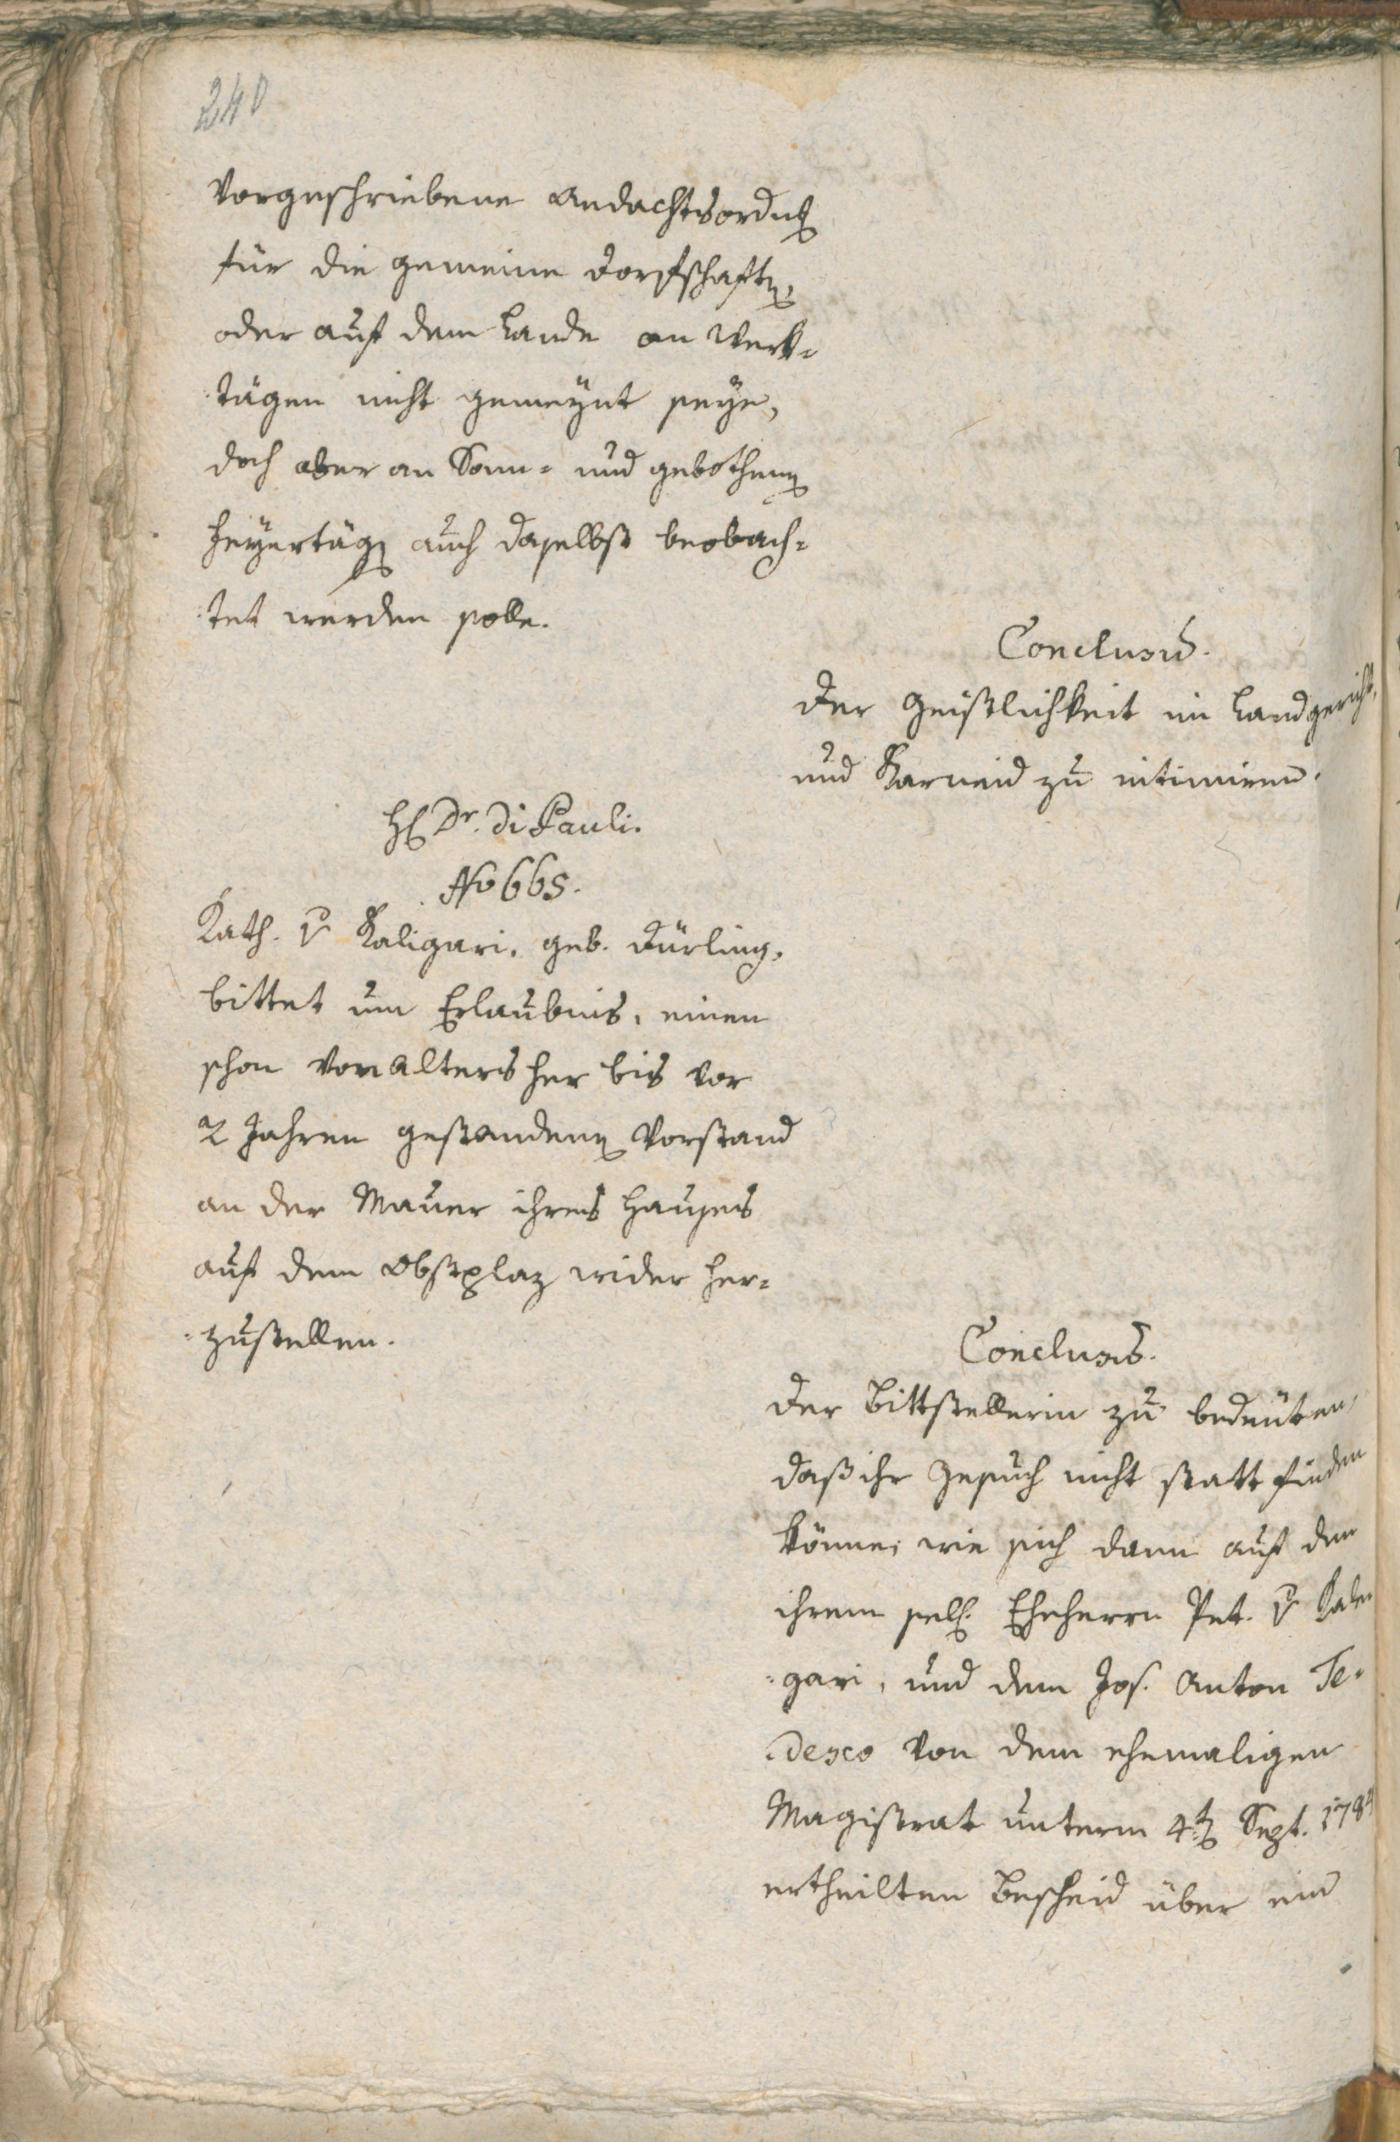 240
vorgeschriebene Andachtsordnung
für die gemeine Dorfschaften,
oder auf dem Lande an Werk-
tägen nicht gemeynt seye,
doch aber an Sonn- und gebothenen
Feyertägen auch daselbst beobach-
tet werden solle.
Conclusum.
Der Geistlichkeit im Landgericht,
und Karneid zu intimiren.
H. Dr. Di Pauli.
No 665.
Kath. v. Kaligari, geb. Dürling,
bittet um Erlaubnis, einen
schon von Alters her bis vor
2 Jahren gestandenen Vorstand
an der Mauer ihres Hauses
auf dem Obstplaz wider her-
zustellen.
Conclusum.
Der Bittstellerin zu bedeuten,
daß ihr Gesuch nicht statt finden
könne, wie sich dann auf den
ihrem sel. Eheherrn Pet. v. Kali-
gari, und dem Jos. Anton Te-
desco von dem ehemaligen
Magistrat unterm 4ten Sept. 1784
ertheilten Bescheid über ein